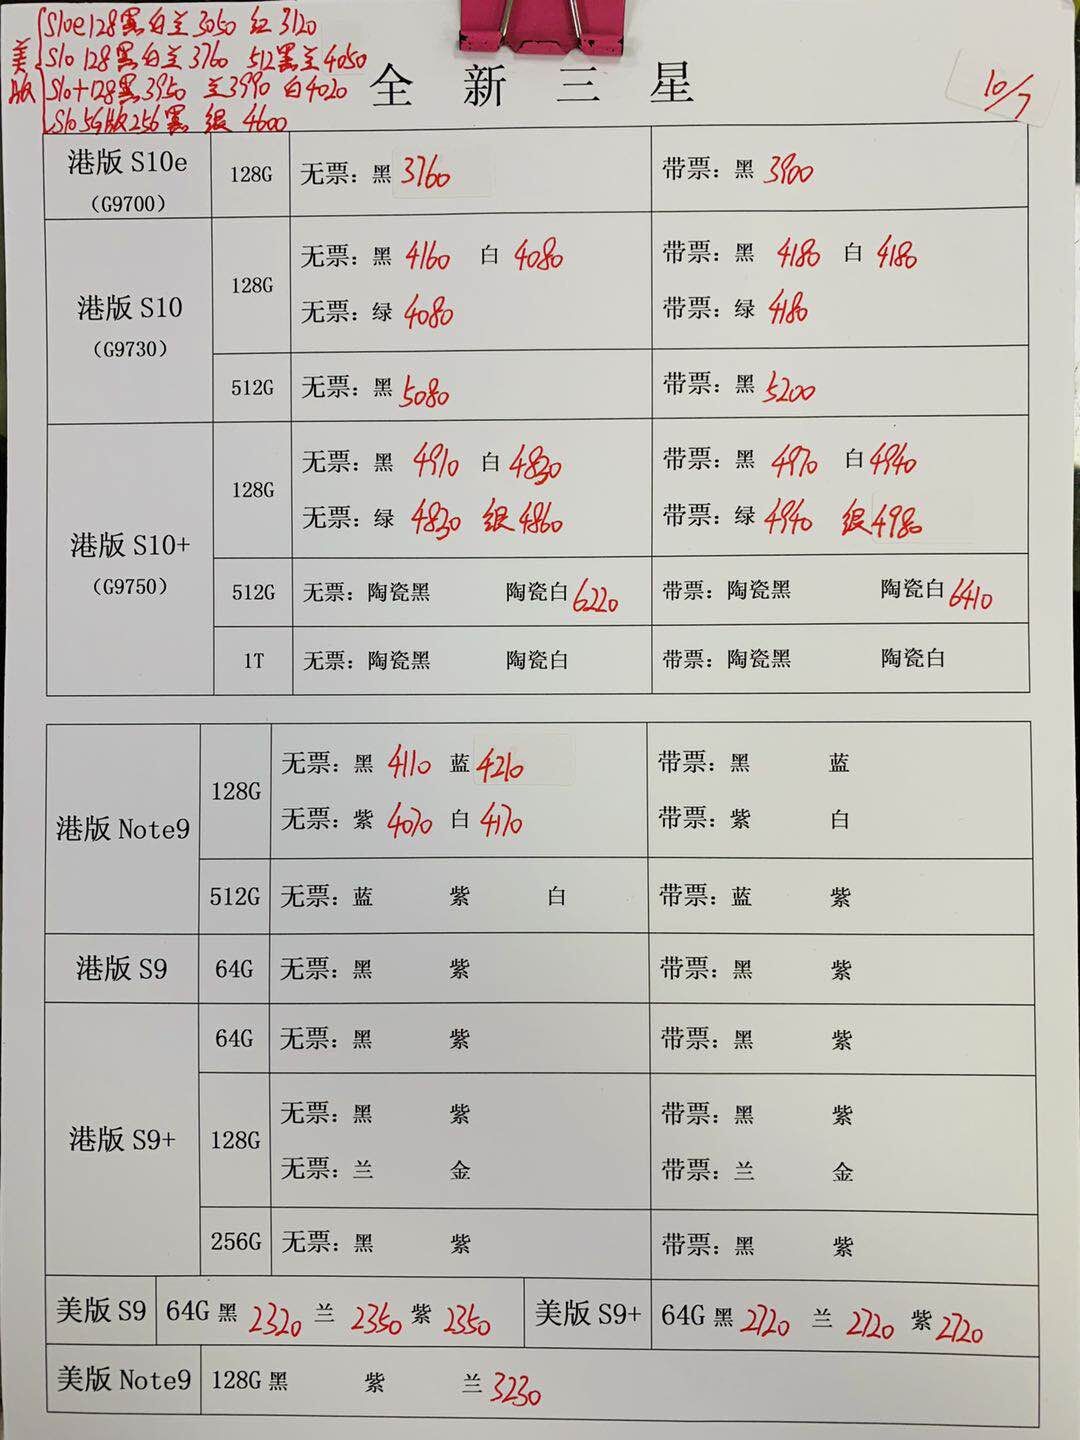 美版
S10e128黑白兰3050 红3120
S10 128黑白兰3760 512黑兰4050
S10+128黑3950 兰3990 白4020
S10 5G版256黑 银 4600
全新三星
10/7
港版 S10e
(G9700)
128G
无票：黑 3760
带票：黑 3900
港版 S10
(G9730)
128G
无票：黑 4160 白 4080
带票：黑 4180 白 4180
无票：绿 4080
带票：绿 4180
512G
无票：黑 5080
带票：黑 5200
港版 S10+
(G9750)
128G
无票：黑 4910 白 4830
带票：黑 4970 白 4940
无票：绿 4830 银 4860
带票：绿 4940 银 4980
512G
无票：陶瓷黑 陶瓷白 6220
带票：陶瓷黑 陶瓷白 6410
1T
无票：陶瓷黑 陶瓷白
带票：陶瓷黑 陶瓷白
港版 Note9
128G
无票：黑 4110 蓝 4210
带票：黑 蓝
无票：紫 4070 白 4170
带票：紫 白
512G
无票：蓝 紫 白
带票：蓝 紫
港版 S9
64G
无票：黑 紫
带票：黑 紫
港版 S9+
64G
无票：黑 紫
带票：黑 紫
128G
无票：黑 紫
带票：黑 紫
无票：兰 金
带票：兰 金
256G
无票：黑 紫
带票：黑 紫
美版 S9
64G 黑 2320 兰 2350 紫 2350
美版 S9+
64G 黑 2720 兰 2720 紫 2720
美版 Note9
128G 黑 紫 兰 3230